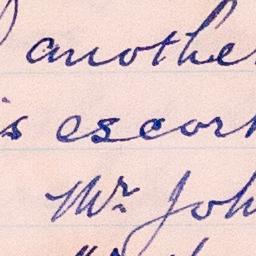 another
is escort
Mr. Joh